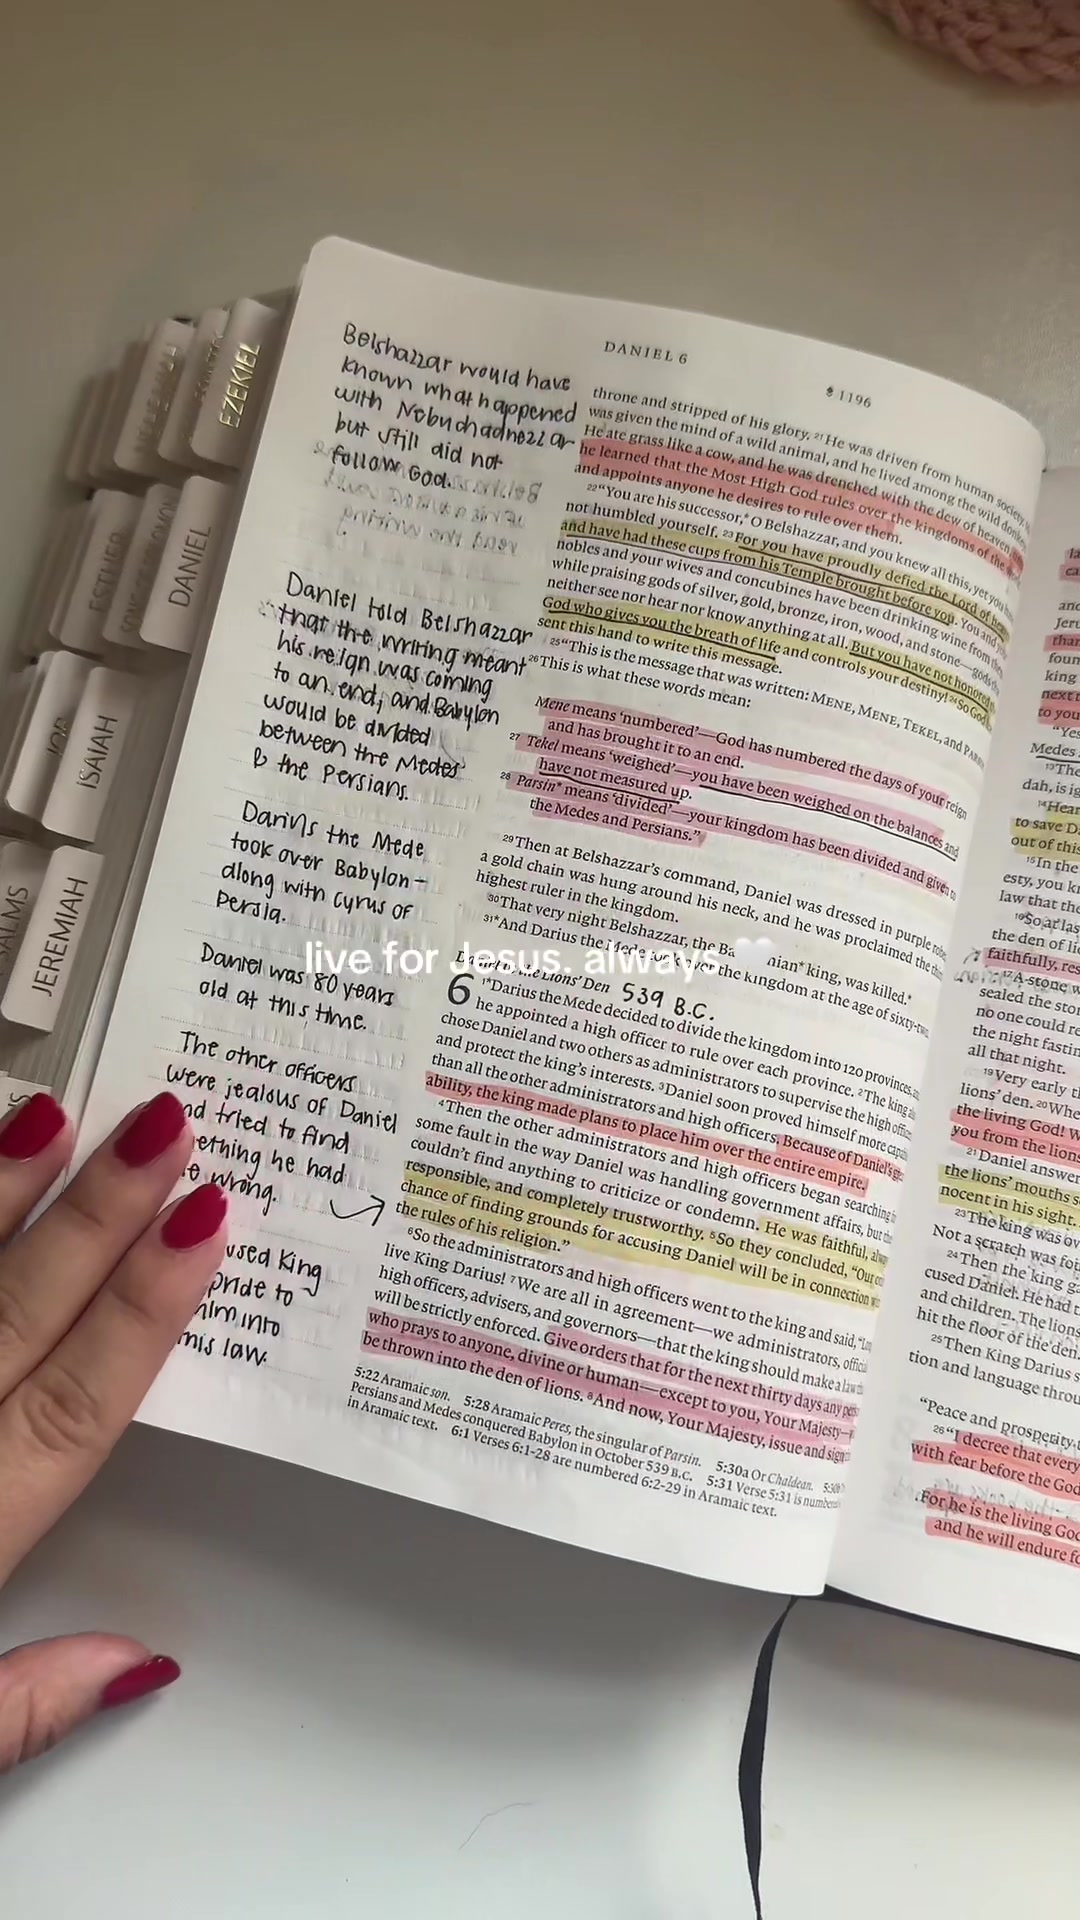 EZEKIEL
DANIEL
ESTHER
JOB
ISAIAH
JEREMIAH
DANIEL 6
1196
Belshazzar would have
known what happened
with Nebuchadnezzar
but still did not
follow God.
Daniel told Belshazzar
that the writing meant
his reign was coming
to an end, and Babylon
would be divided
between the Medes
& the Persians.
Darius the Mede
took over Babylon -
along with Cyrus of
Persia.
Daniel was 80 years
old at this time.
The other officers
were jealous of Daniel
and tried to find
he had
wrong.
used King
pride to
him into
this law.
throne and stripped of his glory. 21He was driven from human society.
was given the mind of a wild animal, and he lived among the wild
He ate grass like a cow, and he was drenched with the dew of heaven,
he learned that the Most High God rules over the kingdoms of the
and appoints anyone he desires to rule over them.
22“You are his successor,* O Belshazzar, and you knew all this, yet you
not humbled yourself. 23For you have proudly defied the Lord of
and have had these cups from his Temple brought before you. You and
nobles and your wives and concubines have been drinking wine from
while praising gods of silver, gold, bronze, iron, wood, and stone—gods
neither see nor hear nor know anything at all. But you have not honored
God who gives you the breath of life and controls your destiny! 24So God
sent this hand to write this message.
25“This is the message that was written: MENE, MENE, TEKEL, and
26This is what these words mean:
Mene means ‘numbered’—God has numbered the days of your reign
and has brought it to an end.
27 Tekel means ‘weighed’—you have been weighed on the balances and
have not measured up.
28 Parsin* means ‘divided’—your kingdom has been divided and given to
the Medes and Persians.”
29Then at Belshazzar’s command, Daniel was dressed in purple
a gold chain was hung around his neck, and he was proclaimed the
highest ruler in the kingdom.
30That very night Belshazzar, the king, was killed.*
31*And Darius the Mede took over the kingdom at the age of
live for Jesus. always
Lions’ Den 539 B.C.
6 1*Darius the Mede decided to divide the kingdom into 120 provinces,
he appointed a high officer to rule over each province. 2The king
chose Daniel and two others as administrators to supervise the high
and protect the king’s interests. 3Daniel soon proved himself more
than all the other administrators and high officers. Because of Daniel’s
ability, the king made plans to place him over the entire empire.
4Then the other administrators and high officers began searching
some fault in the way Daniel was handling government affairs, but
couldn’t find anything to criticize or condemn. He was faithful,
responsible, and completely trustworthy. 5So they concluded, “Our
chance of finding grounds for accusing Daniel will be in connection
the rules of his religion.”
6So the administrators and high officers went to the king and said,
live King Darius! 7We are all in agreement—we administrators,
high officers, advisers, and governors—that the king should make a law
will be strictly enforced. Give orders that for the next thirty days any
who prays to anyone, divine or human—except to you, Your Majesty—
be thrown into the den of lions. 8And now, Your Majesty, issue and sign
5:22 Aramaic son. 5:28 Aramaic Peres, the singular of Parsin. 5:30a Or Chaldean.
Persians and Medes conquered Babylon in October 539 B.C. 5:31 Verse 5:31 is
in Aramaic text. 6:1 Verses 6:1-28 are numbered 6:2-29 in Aramaic text.
next
to you
“Yes
Medes
13The
dah, is
14Hear
to save
out of this
15In the
esty, you
law that the
16So at las
the den of
faithfully,
17A stone
sealed the
no one could
the night
all that night.
19Very early
lions’ den. 20
the living God!
you from the lions
21Daniel answer
the lions’ mouths
nocent in his sight.
23The king was
Not a scratch was
24Then the king
cused Daniel. He had
and children. The lions
hit the floor of the den.
25Then King Darius
tion and language
“Peace and prosperity
26“I decree that every
with fear before the God
For he is the living God
and he will endure